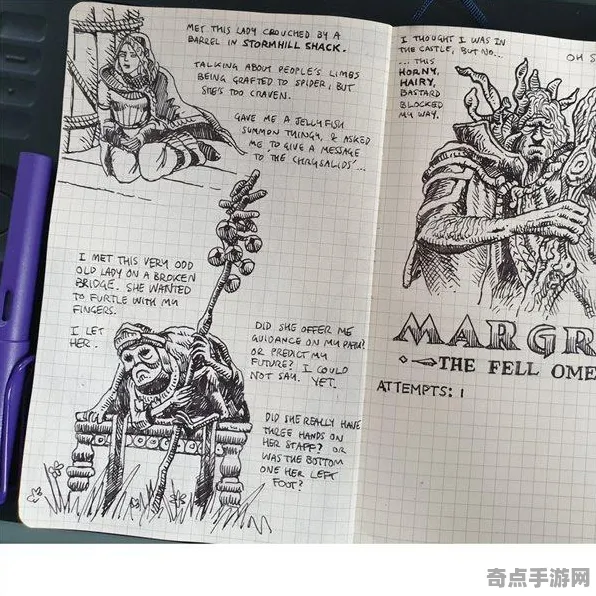 MET THIS LADY CROUCHED BY A
BARREL IN STORMHILL SHACK.
TALKING ABOUT PEOPLE'S LIMBS
BEING GRAFTED TO SPIDER, BUT
SHE'S TOO CRAVEN.
GAVE ME A JELLYFISH
SUMMON THINGY, & ASKED
ME TO GIVE A MESSAGE
TO THE CHRYSALIDS'...
I MET THIS VERY ODD
OLD LADY ON A BROKEN
BRIDGE. SHE WANTED
TO FURTLE WITH MY
FINGERS.
I LET
HER.
DID SHE OFFER ME
GUIDANCE ON MY PATH?
OR PREDICT MY
FUTURE? I COULD
NOT SAY. YET.
DID SHE REALLY HAVE
THREE HANDS ON
HER STAFF? OR
WAS THE BOTTOM
ONE HER LEFT
FOOT?
I THOUGHT I WAS IN
THE CASTLE, BUT NO...
... THIS
HORNY,
HAIRY,
BASTARD
BLOCKED
MY WAY.
OH S
MARGR
THE FELL OME
ATTEMPTS: 1
奇点手游网